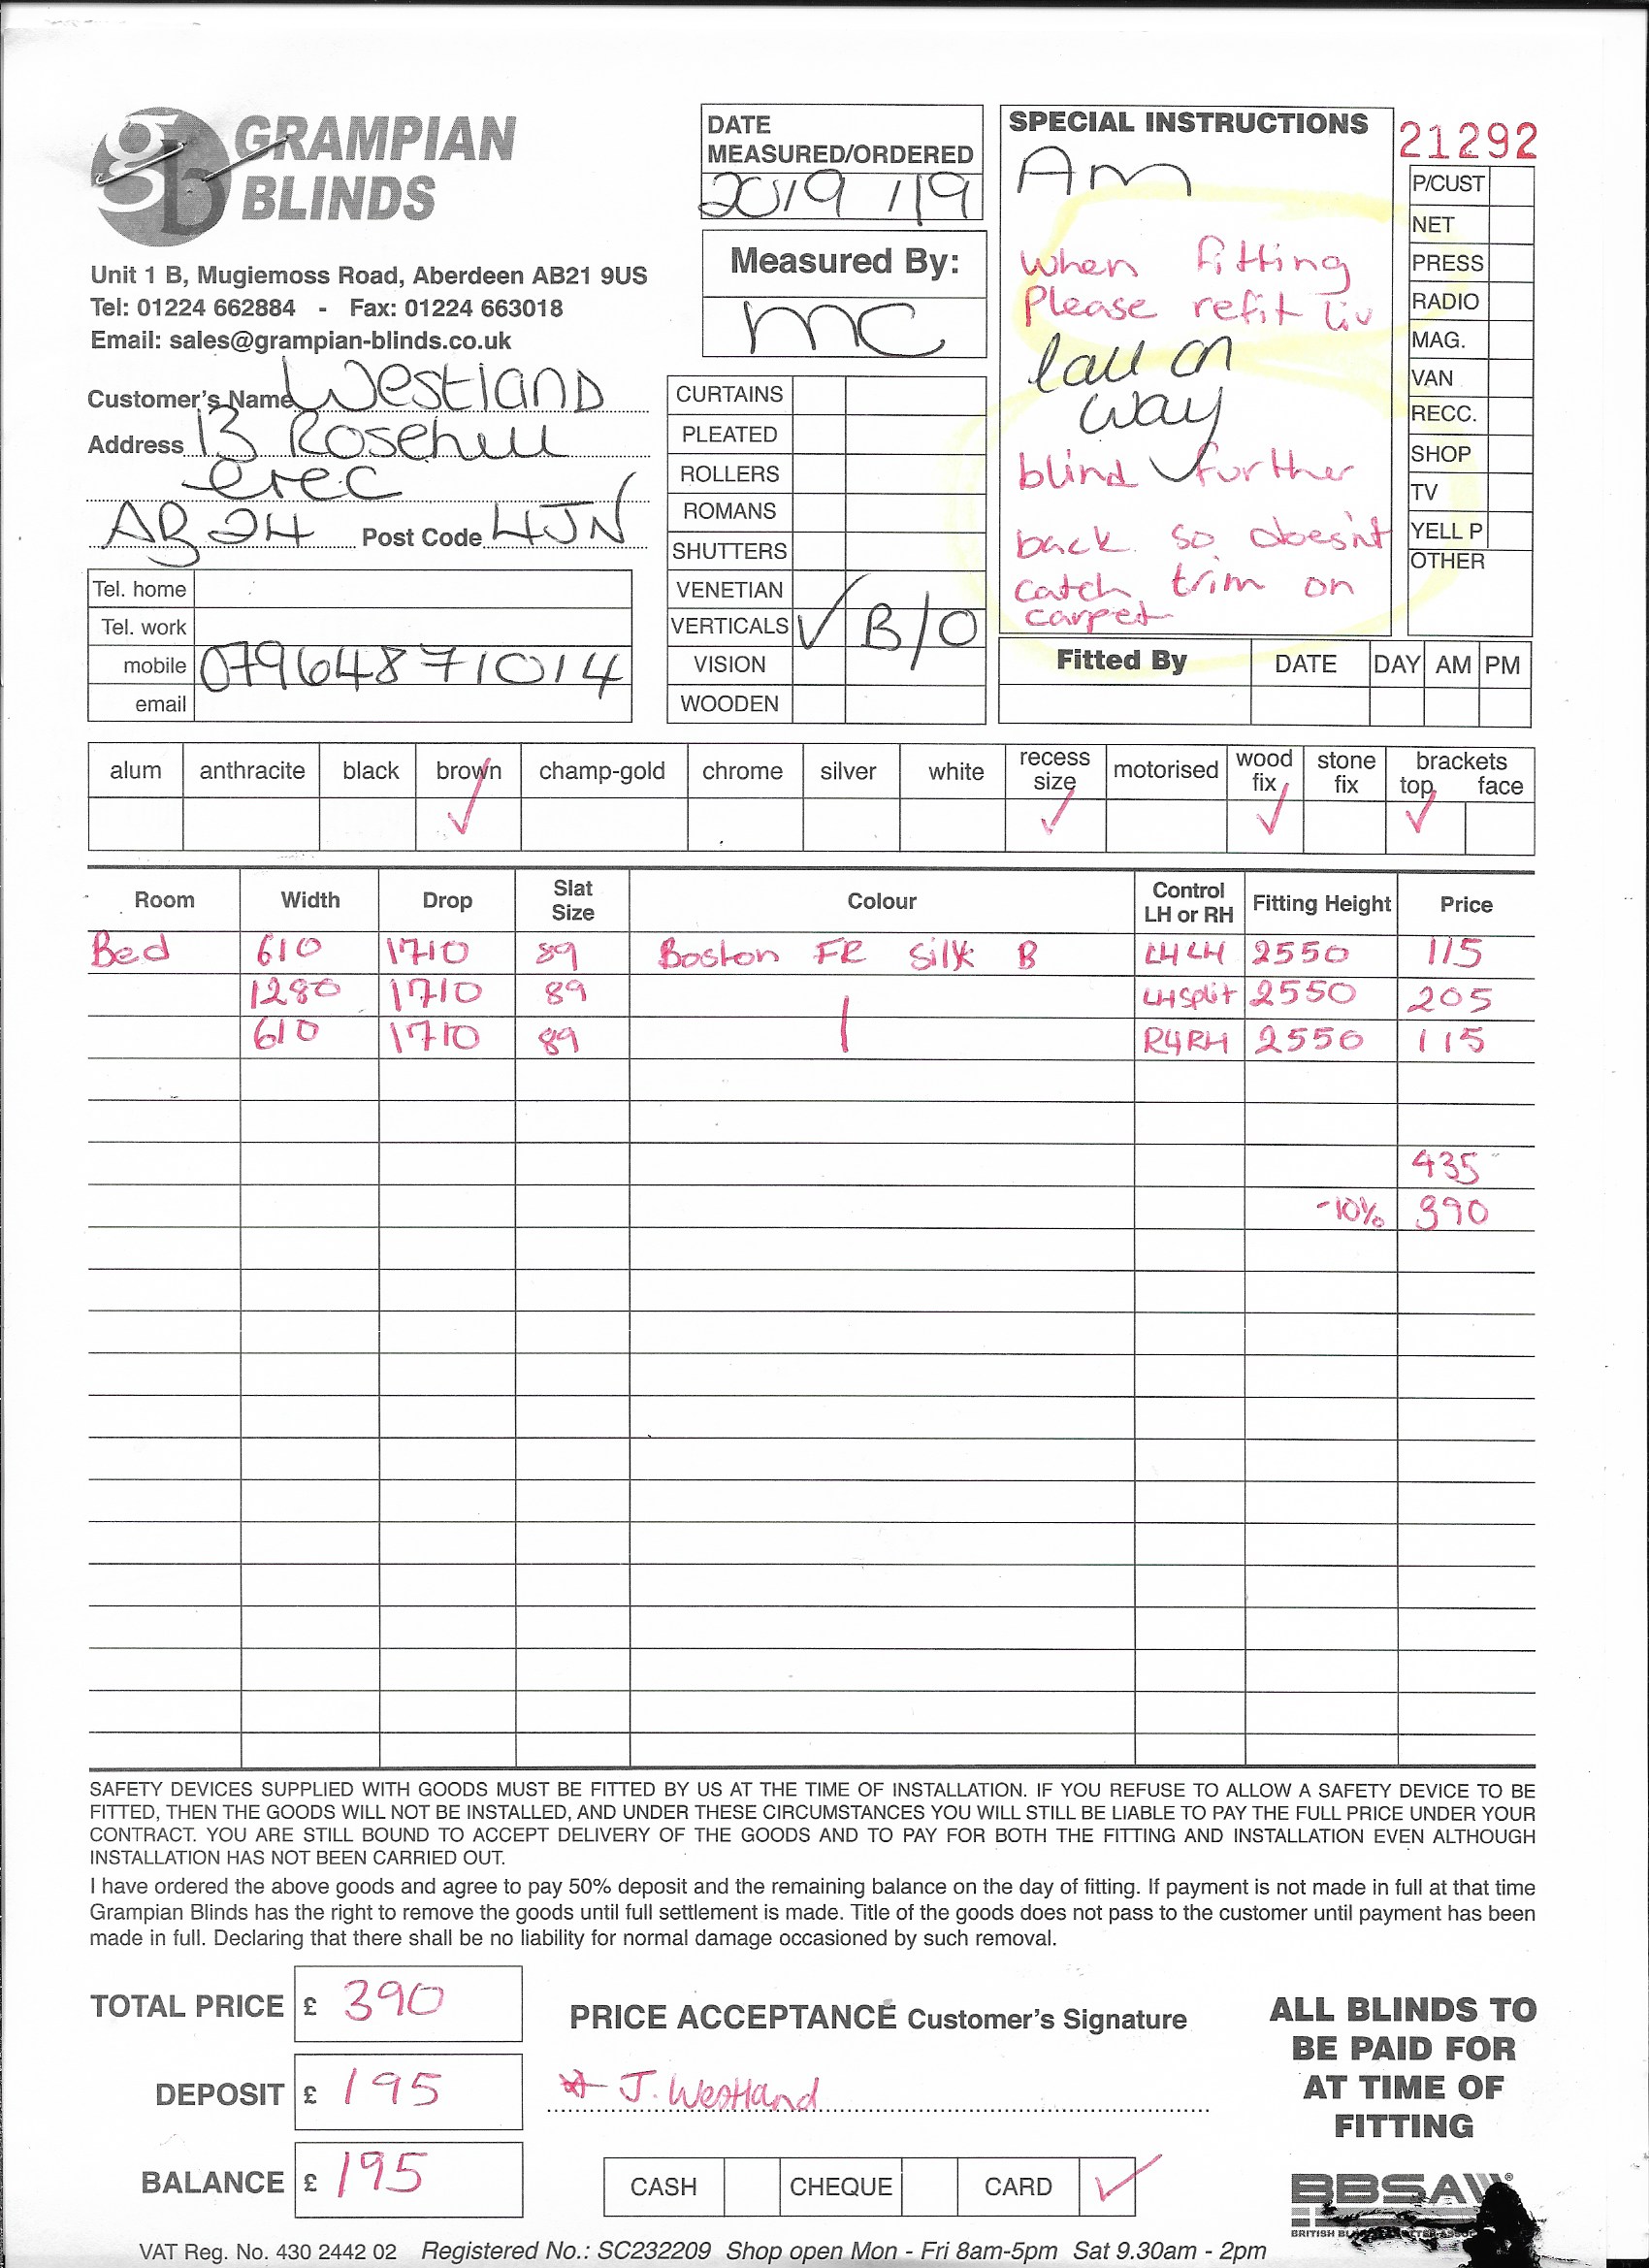 GRAMPIAN
BLINDS
Unit 1 B, Mugiemoss Road, Aberdeen AB21 9US
Tel: 01224 662884 - Fax: 01224 663018
Email: sales@grampian-blinds.co.uk
Customer's Name Westland
Address 13 Rosehill
Cres
AB24 Post Code 4JN
Tel. home
Tel. work
mobile 07964871014
email
DATE
MEASURED/ORDERED
20/9/19
Measured By:
MC
CURTAINS
PLEATED
ROLLERS
ROMANS
SHUTTERS
VENETIAN
VERTICALS ✓ B/O
VISION
WOODEN
SPECIAL INSTRUCTIONS
Am
When fitting
Please refit liv
Call on
way
blind further
back so doesn't
catch trim on
carpet
21292
P/CUST
NET
PRESS
RADIO
MAG.
VAN
RECC.
SHOP
TV
YELL P
OTHER
Fitted By DATE DAY AM PM
alum anthracite black brown ✓ champ-gold chrome silver white recess size ✓ motorised wood fix ✓ stone fix brackets top ✓ face
Room Width Drop Slat Size Colour Control LH or RH Fitting Height Price
Bed 610 1710 89 Boston FR Silk B LHLH 2550 115
1280 1710 89 LHSplit 2550 205
610 1710 89 RHRH 2550 115
435
-10% 390
SAFETY DEVICES SUPPLIED WITH GOODS MUST BE FITTED BY US AT THE TIME OF INSTALLATION. IF YOU REFUSE TO ALLOW A SAFETY DEVICE TO BE
FITTED, THEN THE GOODS WILL NOT BE INSTALLED, AND UNDER THESE CIRCUMSTANCES YOU WILL STILL BE LIABLE TO PAY THE FULL PRICE UNDER YOUR
CONTRACT. YOU ARE STILL BOUND TO ACCEPT DELIVERY OF THE GOODS AND TO PAY FOR BOTH THE FITTING AND INSTALLATION EVEN ALTHOUGH
INSTALLATION HAS NOT BEEN CARRIED OUT.
I have ordered the above goods and agree to pay 50% deposit and the remaining balance on the day of fitting. If payment is not made in full at that time
Grampian Blinds has the right to remove the goods until full settlement is made. Title of the goods does not pass to the customer until payment has been
made in full. Declaring that there shall be no liability for normal damage occasioned by such removal.
TOTAL PRICE £ 390
DEPOSIT £ 195
BALANCE £ 195
PRICE ACCEPTANCE Customer's Signature
J. Westland
CASH CHEQUE CARD ✓
ALL BLINDS TO
BE PAID FOR
AT TIME OF
FITTING
BBSA
BRITISH
VAT Reg. No. 430 2442 02 Registered No.: SC232209 Shop open Mon - Fri 8am-5pm Sat 9.30am - 2pm